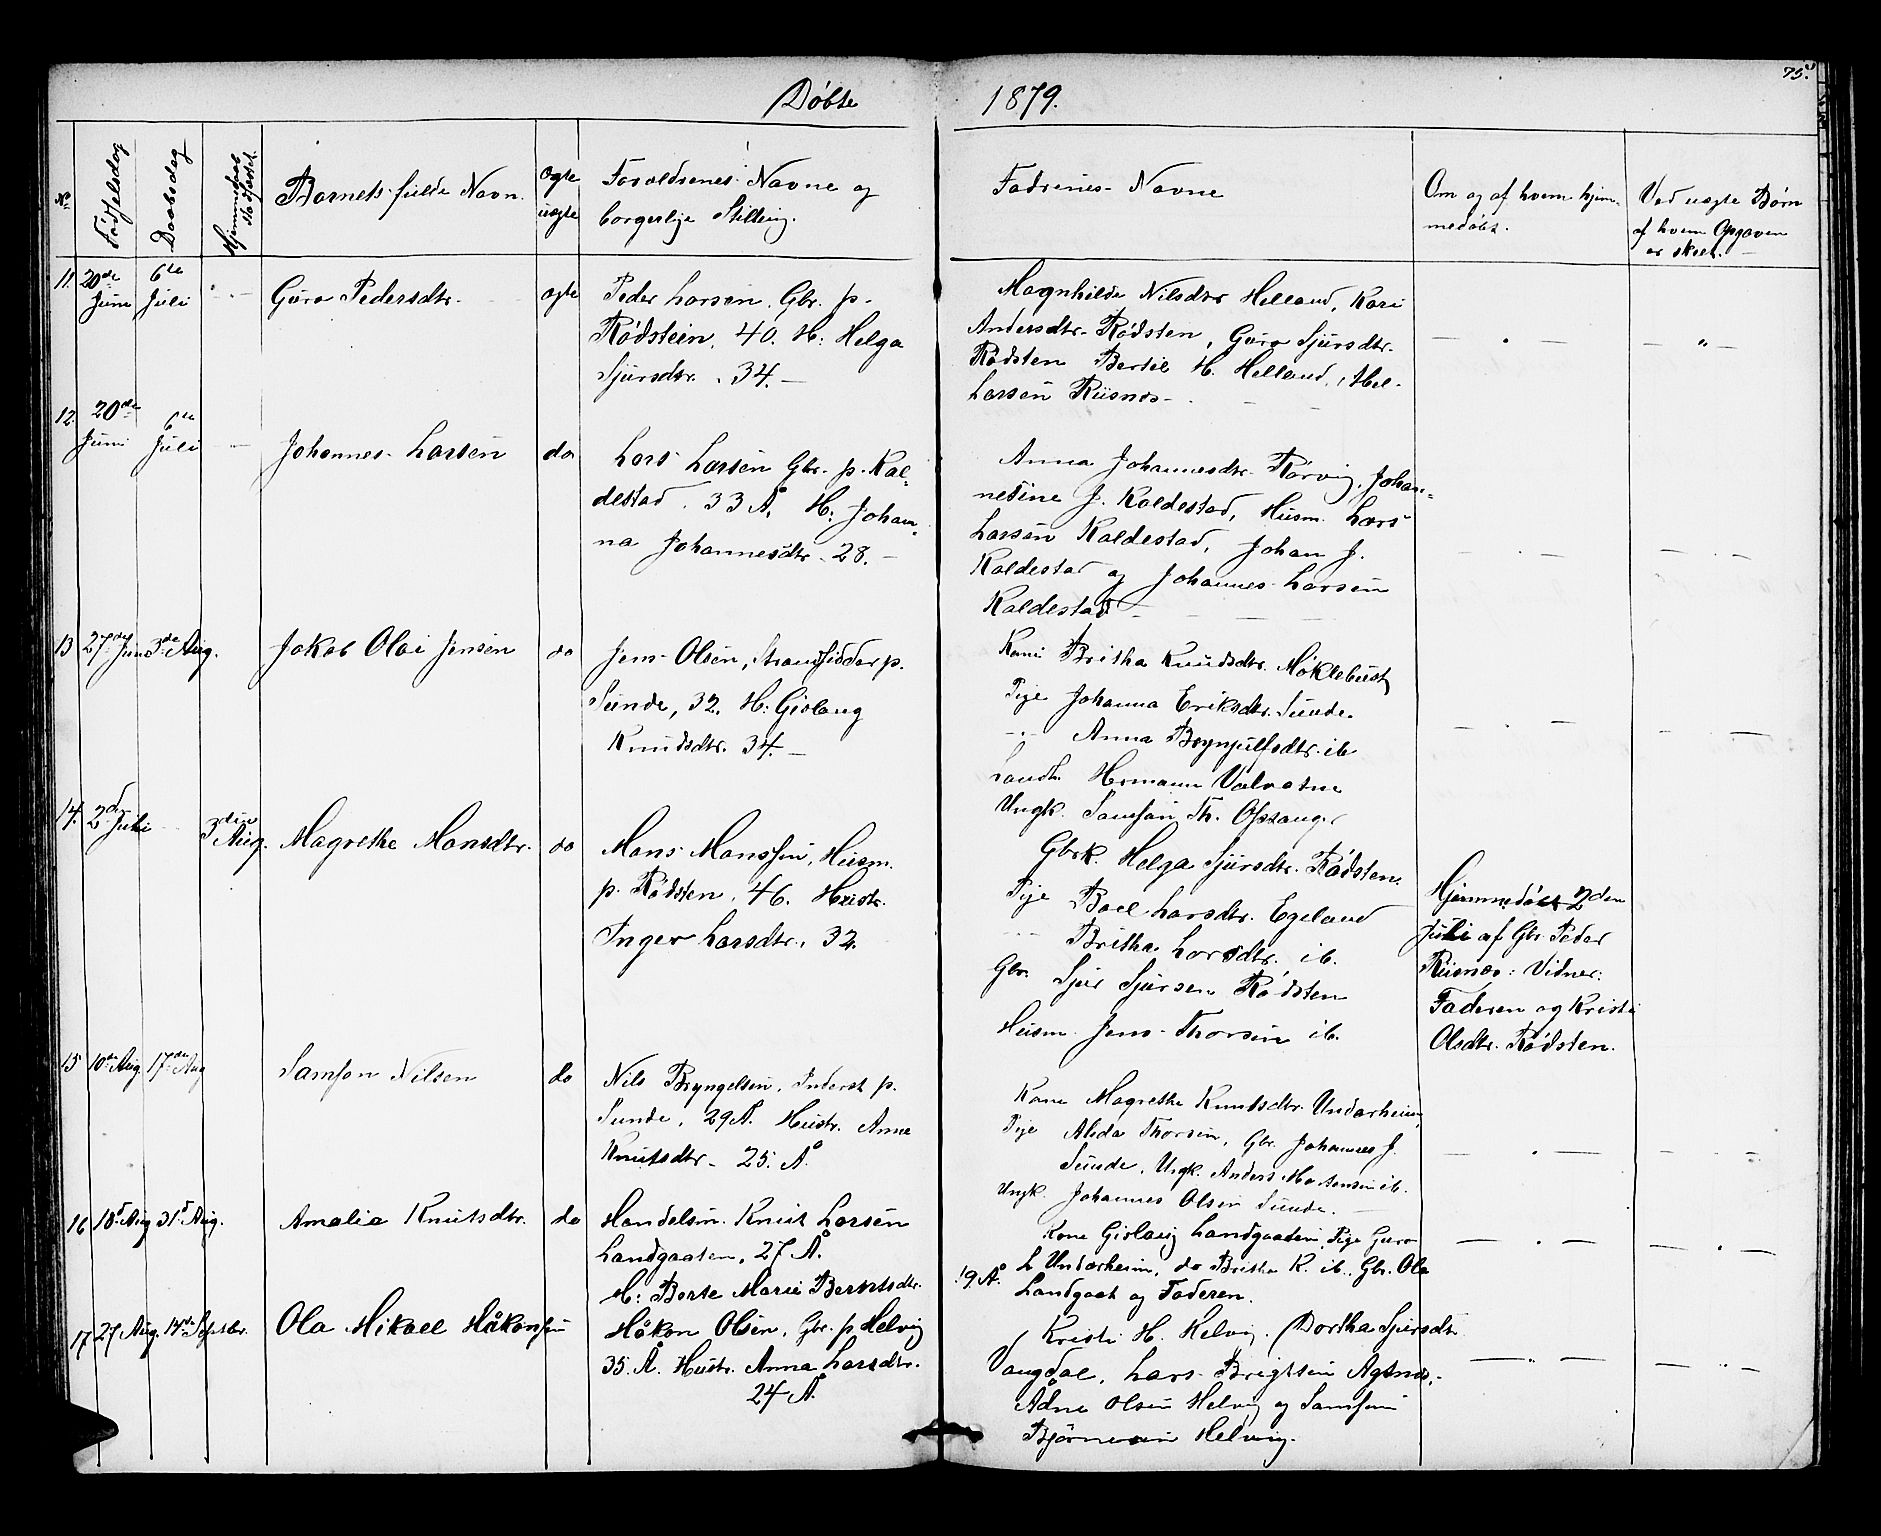 75.
Døbte 1879.
No
Fødselsdag
Daabsdag
Barnets fulde Navn.
Ægte
uægte
Forældrenes Navne og
borgerlige Stilling.
Faddernes Navne
Om og af hvem hjem-
medøbt.
Ved uægte Børn
af hvem Opgaven
er skeet.
11. 20de Juni 6te Juli
Guro Pedersdtr.
ægte
Peder Larsen, Gbr. p.
Rødstein, 40. H: Helga
Sjursdtr. 34.
Magnhilde Nilsdtr Helland, Kari
Andersdtr. Rødsten, Guro Sjursdtr.
Rødsten Bertil H. Helland,
Larsen Riisnes
12. 20de Juni 6te Juli
Johannes Larsen
do
Lars Larsen Gbr. p. Kal-
destad. 33 Å. H: Johan-
na Johannesdtr. 28.
Anna Johannesdtr. Rørvig, Johan-
nesine J. Kaldestad, Husm. Lars
Larsen Kaldestad, Johan J.
Kaldestad og Johannes Larsen
Kaldestad
13 27de Juni 3de Aug.
Jakob Olai Jensen
do
Jens Olsen, Strandsidder p.
Sunde, 32. H: Gislaug
Knudsdtr. 34.
Kone Britha Knudsdtr. Møklebust
Pige Johanna Eriksdtr. Sunde.
Anna Brynjulfsdtr. ib
Hermann Valvatne
Ungk. Samson Th.
14. 2den Juli
3die Aug.
Magrethe Monsdtr.
do
Mons Monssen, Husm.
p. Rødsten, 46. Hustr.
Inger Larsdtr. 32
Gbrk. Helga Sjursdtr. Rødsten.
Pige Boel Larsdtr. Egeland
Britha Larsdtr. ib.
Gbr. Sjur Sjursen Rødsten
Husm. Jens Thorsen ib.
Hjemmedøbt 2den
Juli af Gbr. Peder
Riisnes: Vidner:
Faderen og Kristi
Olsdtr. Rødsten.
15 10de Aug 17de Aug
Samson Nilsen
do
Nils Bryngelsen, Inderst p.
Sunde, 29 Å. Hustr. Anna
Knutsdtr. 25. Å
Kone Magrethe Knutsdtr. Undarheim,
Pige Alida Thorsen, Gbr. Johannes J.
Sunde, Ungk. Anders Mortensen ib.
Ungk. Johannes Olsen Sunde.
16 18de Aug 31te Aug.
Amalia Knutsdtr.
do
Handelsm. Knut Larsen
Landgaaten, 27 Å.
H: Berte Marie Berntsdtr.
19 Å.
Kone Gislaug Landgaaten, Pige Guro
L Undarheim, do Britha K. ib. Gbr. Ola
Landgaat og Faderen.
17 27 Aug. 14de Septbr.
Ola Mikael Håkonsen
Håkon Olsen, Gbr. p. Helvig
35. Å. Hustr. Anna Larsdtr.
24 Å.
Kristi H. Helvig, Dortha Sjursdtr.
Vangdal, Lars Brigtsen Agtnes,
Ådne Olsen Helvig og Samson
Bjørnesen Helvig.